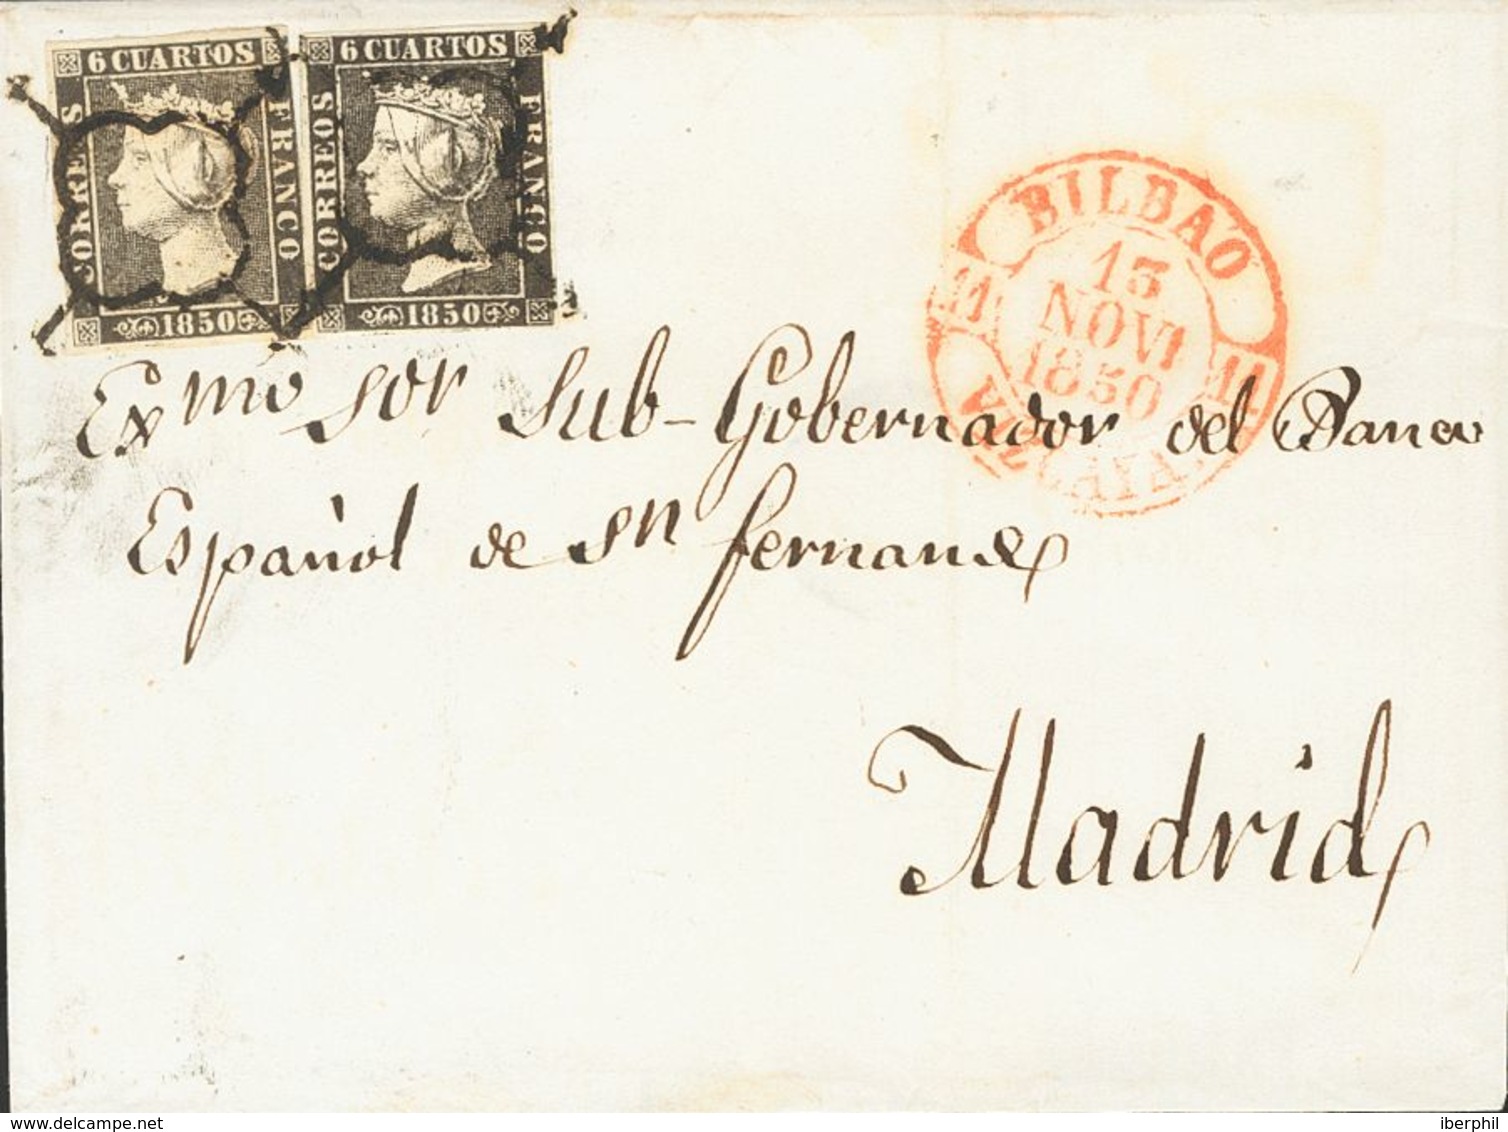 6 CUARTOS
CORREOS
FRANCO
1850
6 CUARTOS
CORREOS
FRANCO
1850
BILBAO
11
13
NOVI
1850
11
Exmo sor Sub-Gobernador del Banco
Español de Sn fernando
Madrid
delcampe.net
iberphil